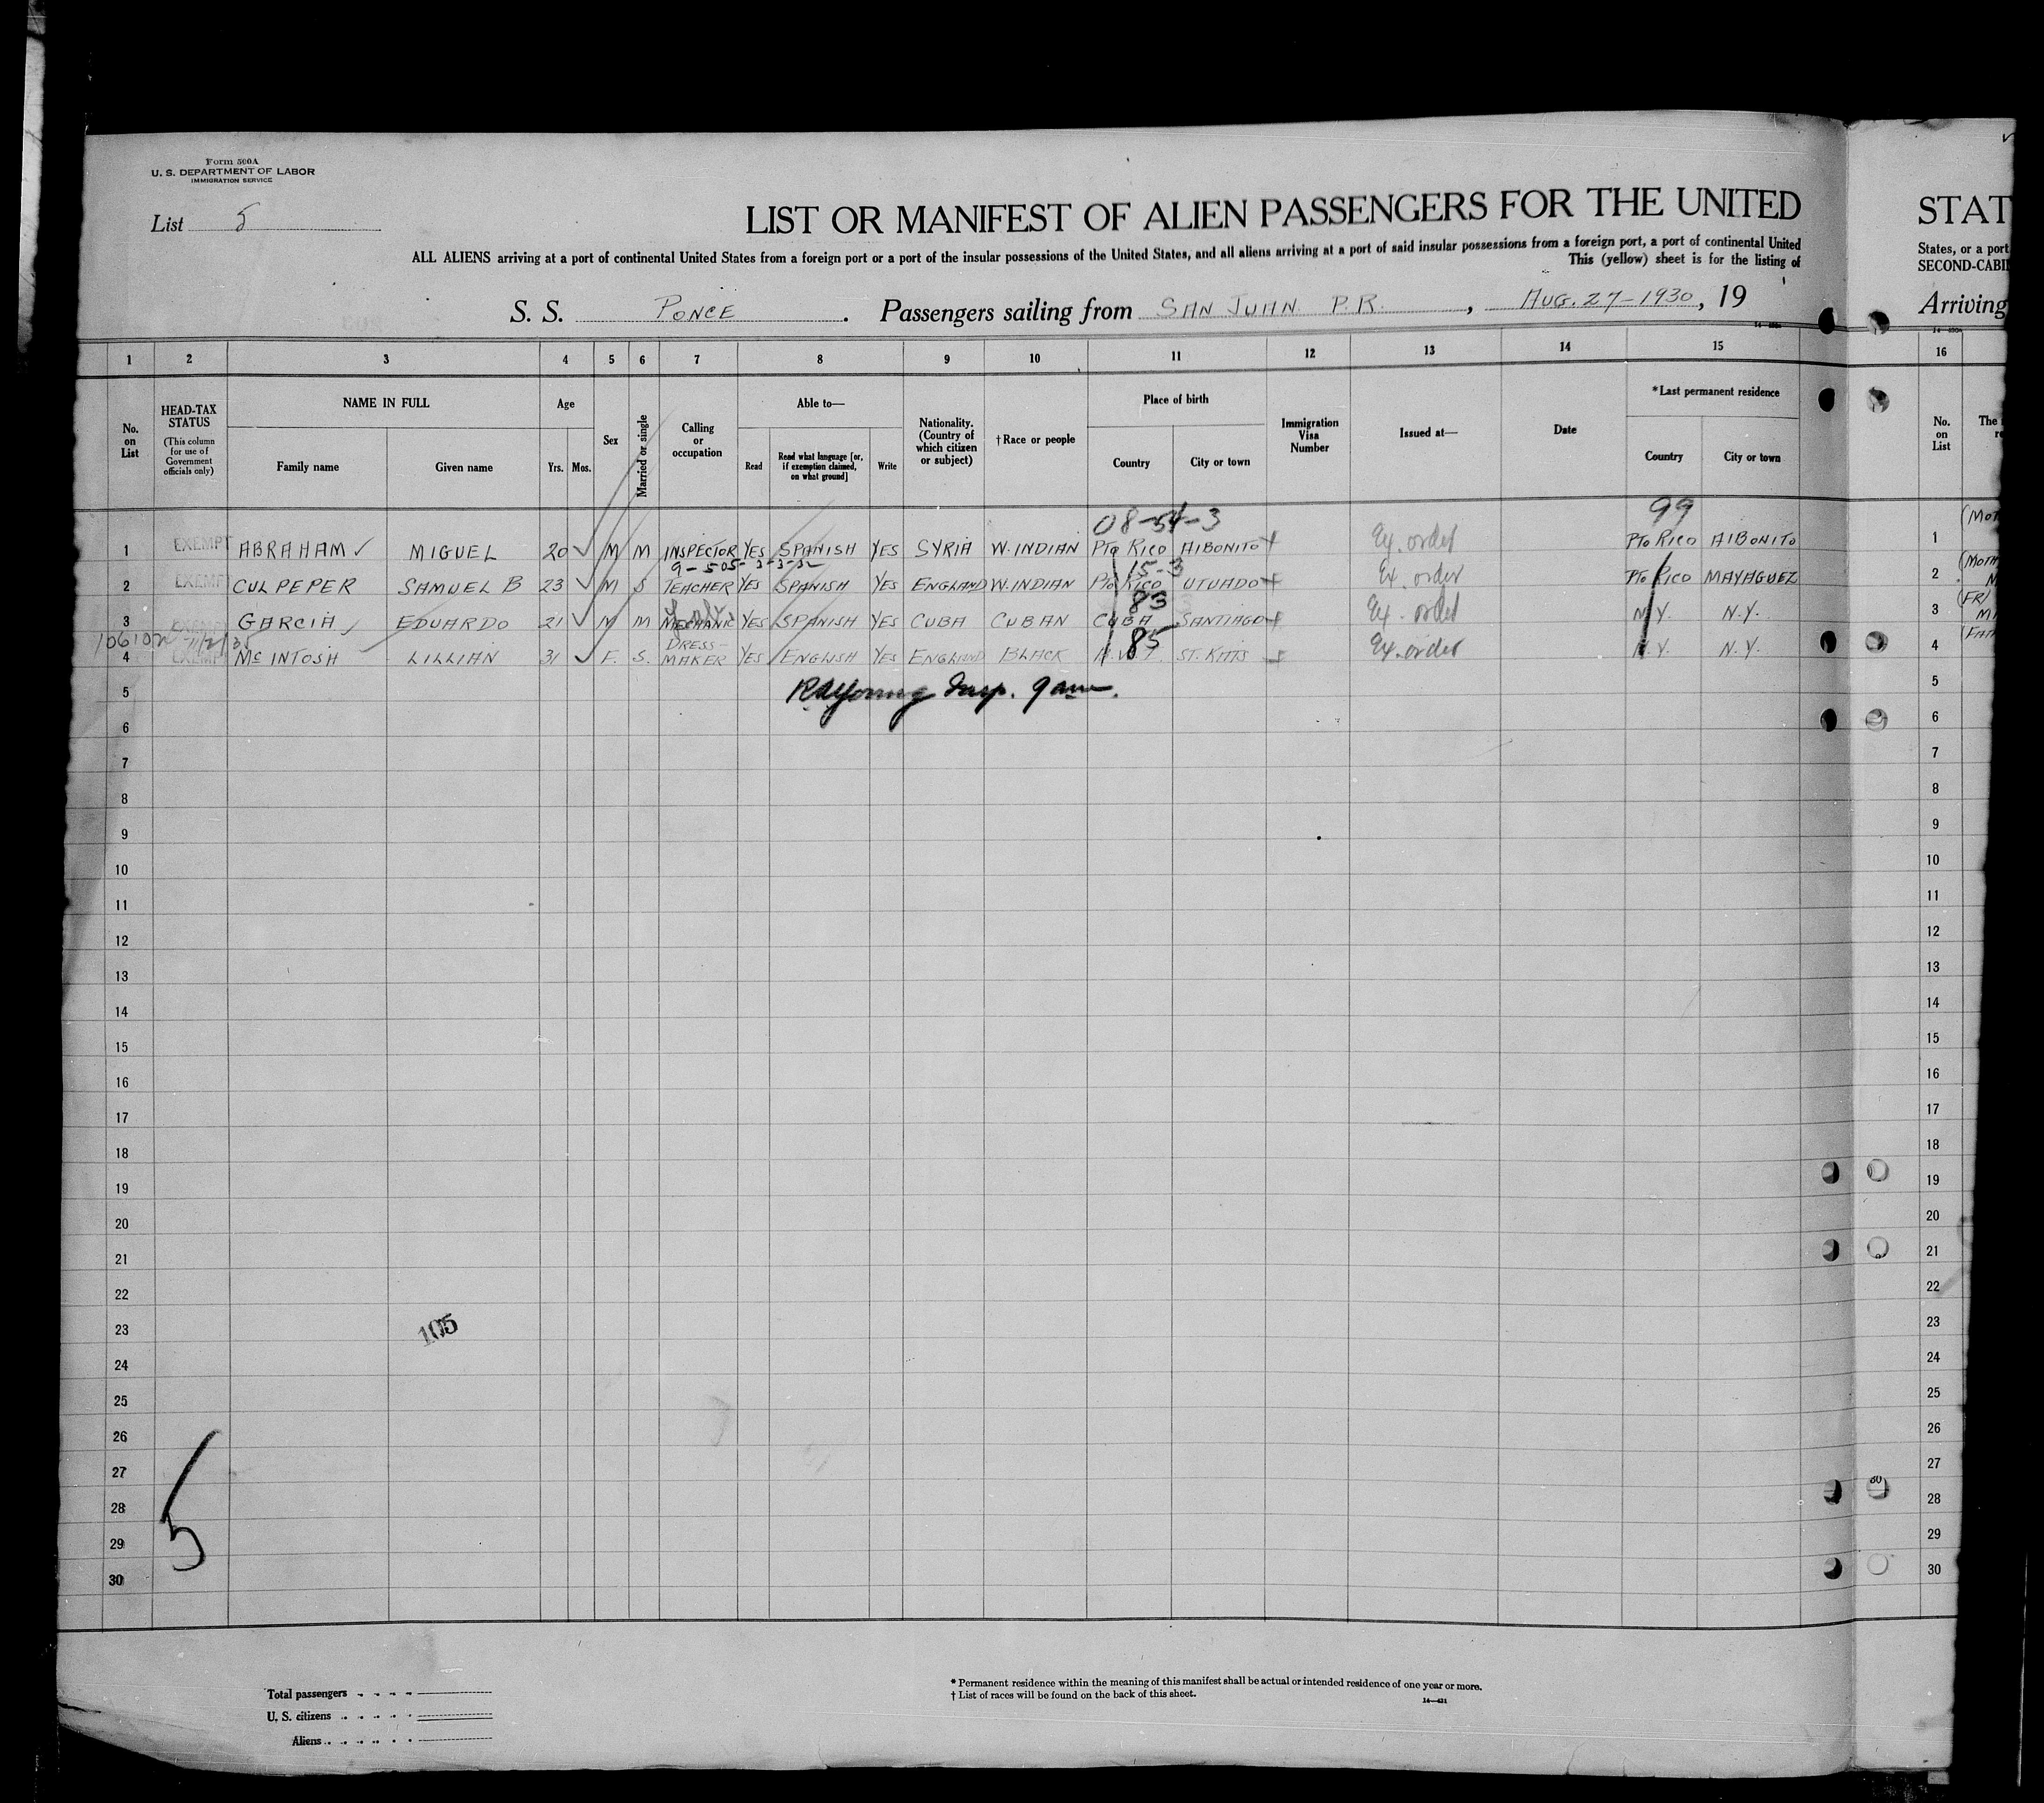 Form 500A
U. S. DEPARTMENT OF LABOR
IMMIGRATION SERVICE
List 5
LIST OR MANIFEST OF ALIEN PASSENGERS FOR THE UNITED
ALL ALIENS arriving at a port of continental United States from a foreign port or a port of the insular possessions of the United States, and all aliens arriving at a port of said insular possessions from a foreign port, a port of continental United
This (yellow) sheet is for the listing of
S. S. PONCE. Passengers sailing from SAN JUAN P.R., AUG. 27-1930, 19
STAT
States, or a port
SECOND-CABI
Arriving
1 2 3 4 5 6 7 8 9 10 11 12 13 14 15 16
No. on List
HEAD-TAX STATUS
(This column for use of Government officials only)
NAME IN FULL
Family name
Given name
Age
Yrs. Mos.
Sex
Married or single
Calling or occupation
Able to—
Read
Read what language [or, if exemption claimed, on what ground]
Write
Nationality. (Country of which citizen or subject)
†Race or people
Place of birth
Country
City or town
Immigration Visa Number
Issued at—
Date
*Last permanent residence
Country
City or town
No. on List
08-54-3
99
1 EXEMPT ABRAHAM MIGUEL 20 M M INSPECTOR YES SPANISH YES SYRIA W. INDIAN PTO RICO AIBONITO Ex. order PTO RICO AIBONITO 1
15-3
2 EXEMPT CULPEPER SAMUEL B 23 M S TEACHER YES SPANISH YES ENGLAND W. INDIAN PTO RICO UTUADO Ex. order PTO RICO MAYAGUEZ 2
83
3 GARCIA EDUARDO 21 M M MECHANIC YES SPANISH YES CUBA CUBAN CUBA SANTIAGO Ex. order N.Y. N.Y. 3
85
4 EXEMPT Mc INTOSH LILLIAN 31 F. S. DRESS-MAKER YES ENGLISH YES ENGLAND BLACK ST. KITTS Ex. order N.Y. N.Y. 4
5 5
6 6
7 7
8 8
9 9
10 10
11 11
12 12
13 13
14 14
15 15
16 16
17 17
18 18
19 19
20 20
21 21
22 22
23 105 23
24 24
25 25
26 26
27 27
28 28
29 29
30 30
5
Total passengers
U. S. citizens
Aliens
* Permanent residence within the meaning of this manifest shall be actual or intended residence of one year or more.
† List of races will be found on the back of this sheet.
14—421